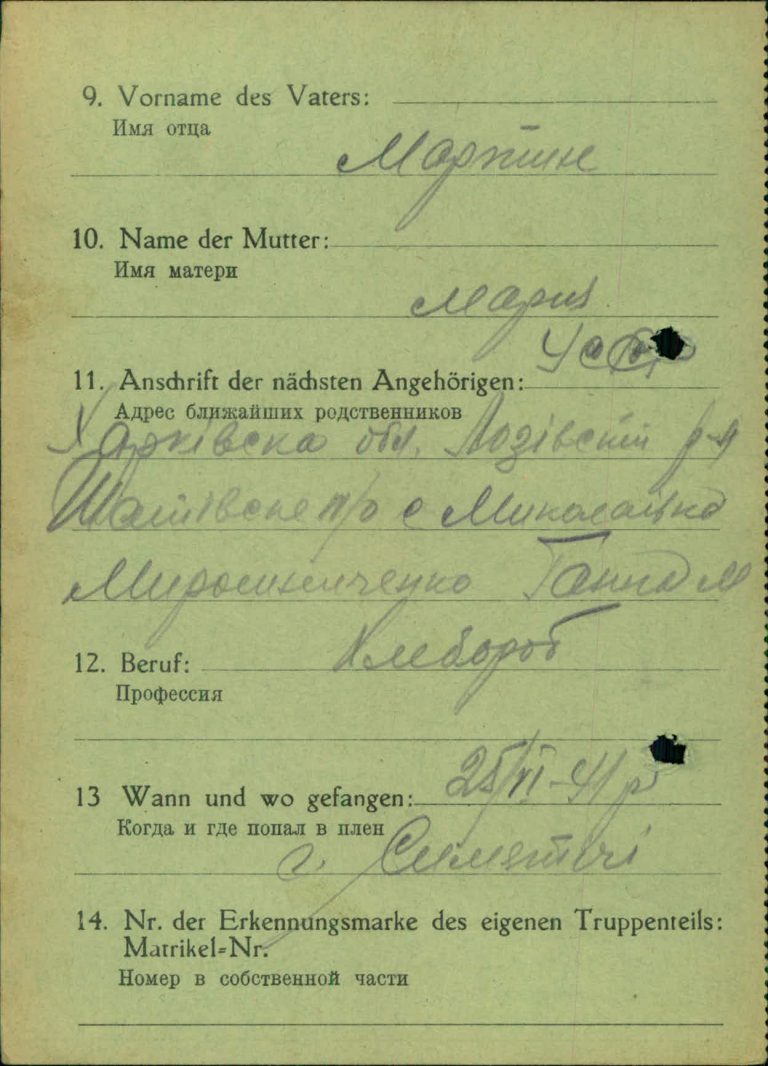 9. Vorname des Vaters:
Имя отца
Мартин
10. Name der Mutter:
Имя матери
Мария
УССР
11. Anschrift der nächsten Angehörigen:
Адрес ближайших родственников
Харківска обл. Лозівский р-н
п/о с Миколаівка
Мирошниченко Ганна М
12. Beruf:
Хлебороб
Профессия
13 Wann und wo gefangen: 25/VI-41 р
Когда и где попал в плен
г. Симятичі
14. Nr. der Erkennungsmarke des eigenen Truppenteils:
Matrikel-Nr.
Номер в собственной части